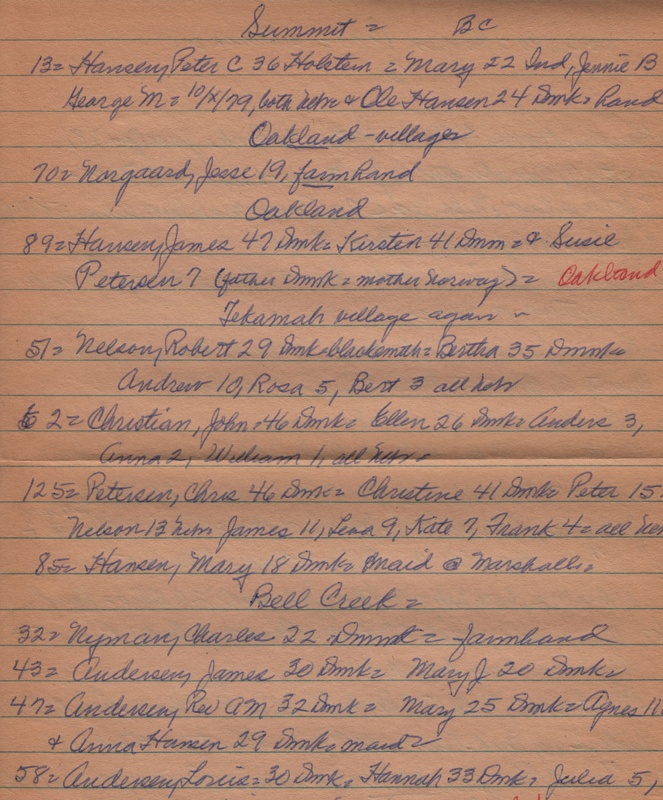 Summit = BC
13= Hansen, Peter C 36 Holstein = Mary 22 Ind, Jennie B
George M = 10/x/79, both Nebr & Ole Hansen 24 Dmk= hand
Oakland - village
70= Norgaard, Jesse 19, farmhand
Oakland
89= Hansen, James 47 Dmk= Kirsten 41 Dmm = & Susie
Petersen 7 (father Dmmk = mother Norway) = Oakland
Tekamah village again ~
51= Nelson, Robert 29 Dmk=blacksmith= Bertha 35 Dmmk=
Andrew 10, Rosa 5, Bert 3 all Nebr
2= Christian, John=46 Dmk= Ellen 26 Dmk= Anders 3,
Anna 2, William 1, all Nebr=
125= Petersen, Chris 46 Dmk= Christine 41 Dmk= Peter 15.
Nelson 13 Nebr James 11, Lena 9, Kate 7, Frank 4= all Neb
85= Hansen, Mary 18 Dmk= Maid @ Marshall=
Bell Creek =
32= Nyman, Charles 22 Dmmk= farmhand
43= Andersen, James 30 Dmk= Mary J 20 Dmk=
47= Andersen, Rev AM 32 Dmk= Mary 25 Dmk= Agnes 11
& Anna Hansen 29 Dmk= maid=
58= Andersen, Louis=30 Dmk= Hannah 33 Dmk= Julia 5,